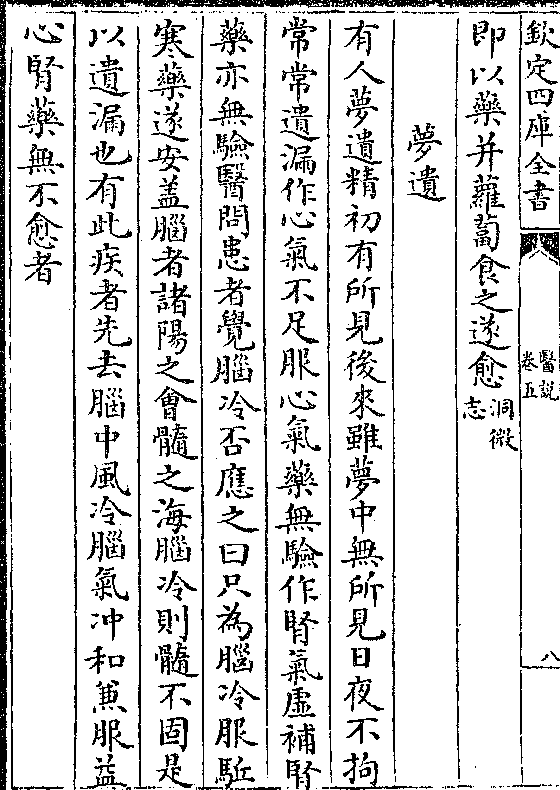 欽定四庫全書
醫說
卷五
八
即以藥并蘿蔔食之遂愈洞微
志
夢遺
有人夢遺精初有所見後來雖夢中無所見日夜不拘
常常遺漏作心氣不足服心氣藥無驗作腎氣虛補腎
藥亦無驗醫問患者覺腦冷否應之曰只為腦冷服駈
寒藥遂安盖腦者諸陽之會髓之海腦冷則髓不固是
以遺漏也有此疾者先去腦中風冷腦氣冲和兼服益
心腎藥無不愈者